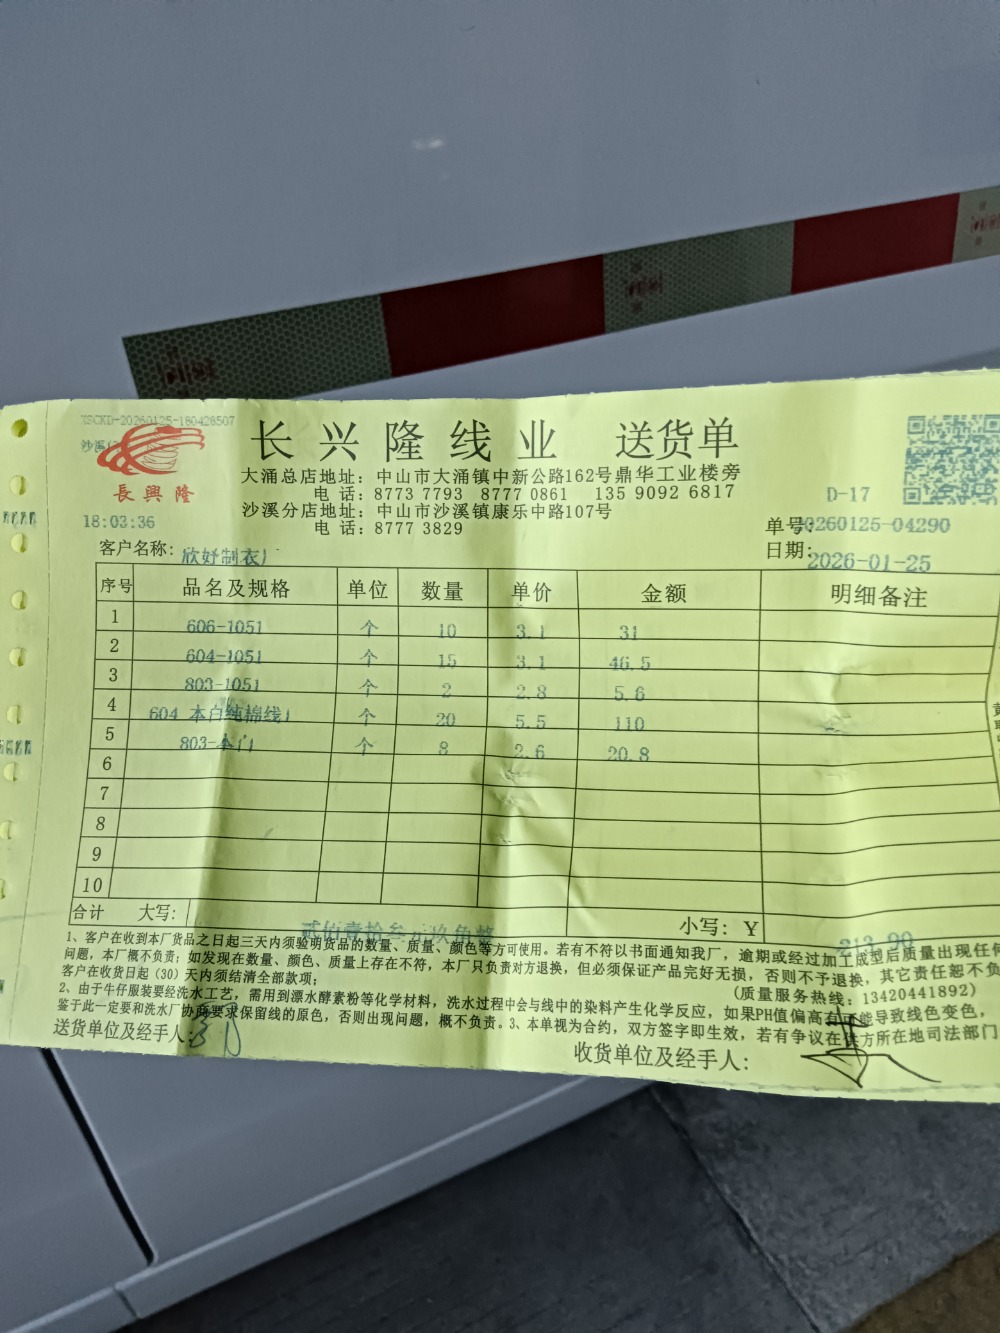 XSCKD-20260125-180426507
沙溪
長興隆
18:03:36
长兴隆线业 送货单
大涌总店地址：中山市大涌镇中新公路162号鼎华工业楼旁
电话：8773 7793 8777 0861 135 9092 6817
沙溪分店地址：中山市沙溪镇康乐中路107号
电话：8777 3829
D-17
单号:20260125-04290
日期:2026-01-25
客户名称：欣妤制衣厂
序号 品名及规格 单位 数量 单价 金额 明细备注
1 606-1051 个 10 3.1 31
2 604-1051 个 15 3.1 46.5
3 803-1051 个 2 2.8 5.6
4 604 本白纯棉线 个 20 5.5 110
5 803-本 个 8 2.6 20.8
6
7
8
9
10
合计 大写：贰佰壹拾叁元玖角整 小写：Y 213.90
1、客户在收到本厂货品之日起三天内须验明货品的数量、质量、颜色等方可使用。若有不符以书面通知我厂，逾期或经过加工成型后质量出现任何
问题，本厂概不负责；如发现在数量、颜色、质量上存在不符，本厂只负责对方退换，但必须保证产品完好无损，否则不予退换，其它责任恕不负
客户在收货日起（30）天内须结清全部款项；
(质量服务热线：13420441892)
2、由于牛仔服装要经洗水工艺，需用到漂水酵素粉等化学材料，洗水过程中会与线中的染料产生化学反应，如果PH值偏高有可能导致线色变色，
鉴于此一定要和洗水厂协商要求保留线的原色，否则出现问题，概不负责。3、本单视为合约，双方签字即生效，若有争议在供方所在地司法部门
送货单位及经手人：
收货单位及经手人：